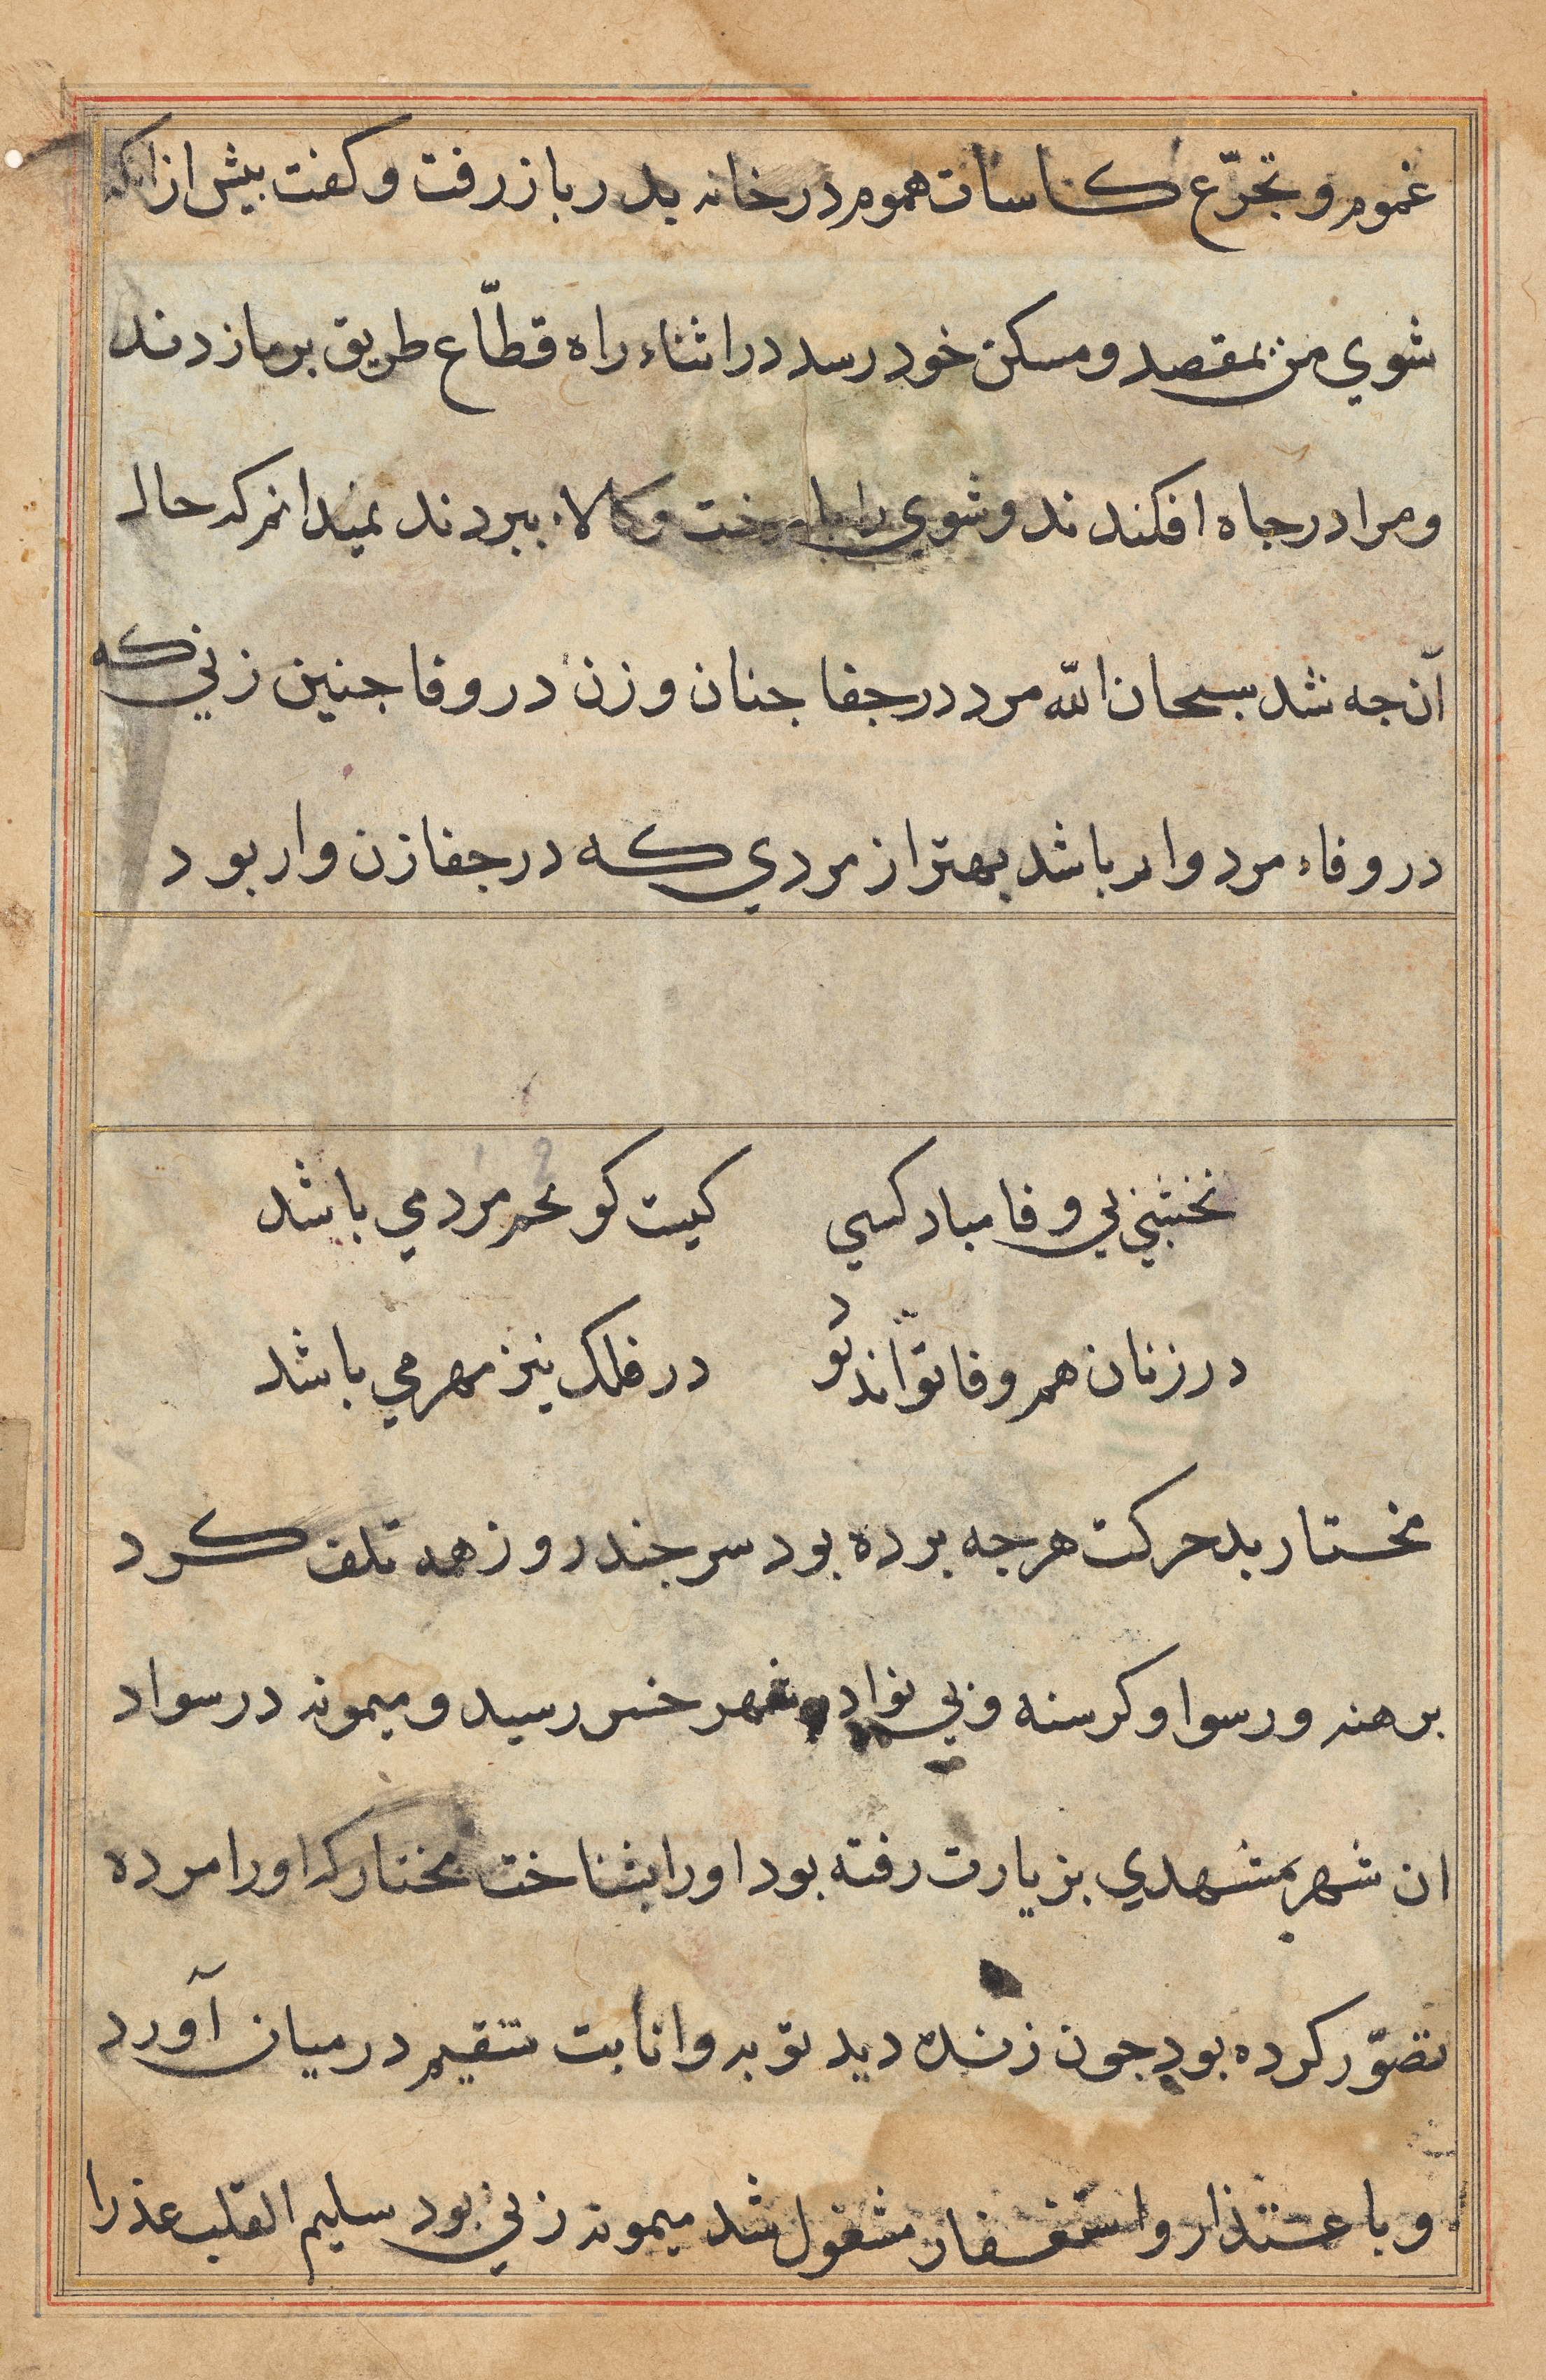 غموم و تجرّع کاسات هموم در خانه بدر باز رفت و کفت بیش از انکه
شوي من بمقصد و مسکن خود رسد در اثناء راه قطّاع طریق بر ما زدند
و مرا در جاه افکندند و شوي را با رخت و کالا ببردند نمیدانم که حال
آن جه شد سبحان اللّه مرد در جفا جنان و زن در وفا جنین زني که
در وفاء مردوار باشد بهتر از مردي که در جفا زن وار بود
نخشبي بي وفا مباد کسي کیست کو محرم مي باشد
در زنان هم وفا توّاند بود در فلک نیز مهر مي باشد
مختار بد حرکت هر جه برده بود سر جند روز همه تلف کرد
برهنه و رسوا و کرسنه و بي نوا در شهر خسر رسید و میمونه در سواد
ان شهر بمشهدي بزیارت رفته بود او را بشناخت مختار که او را مرده
تصوّر کرده بود جون زنده دید توبه و انابت سقیم در میان آورد
و باعتذار و استغفار مشغول شد میمونه زني بود سلیم القلب عذر را